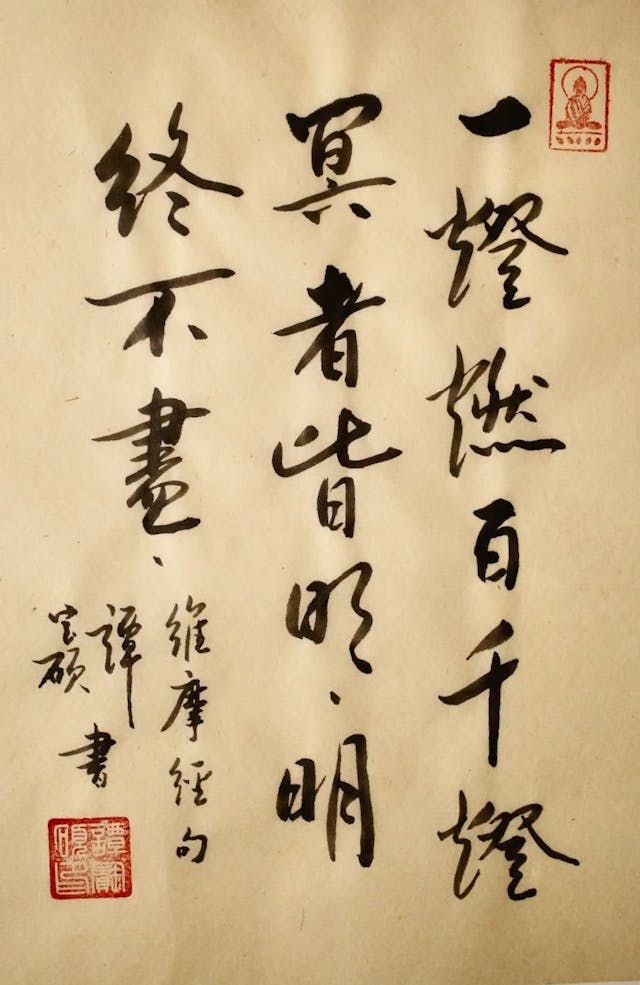 一燈燃百千燈
冥者皆明、明
終不盡、
維摩經句
譚
宝碩
書
譚寶碩印